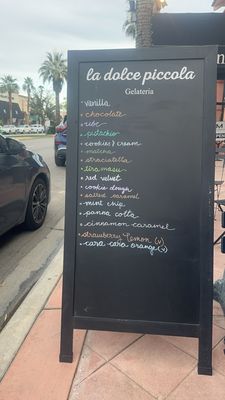 la dolce piccola
Gelateria
vanilla
chocolate
ube
pistachio
cookies & cream
matcha
straciatella
tira masu
red velvet
cookie dough
salted caramel
mint chip
panna cotta
cinnamon caramel
strawberry lemon (v)
cara cara orange (v)